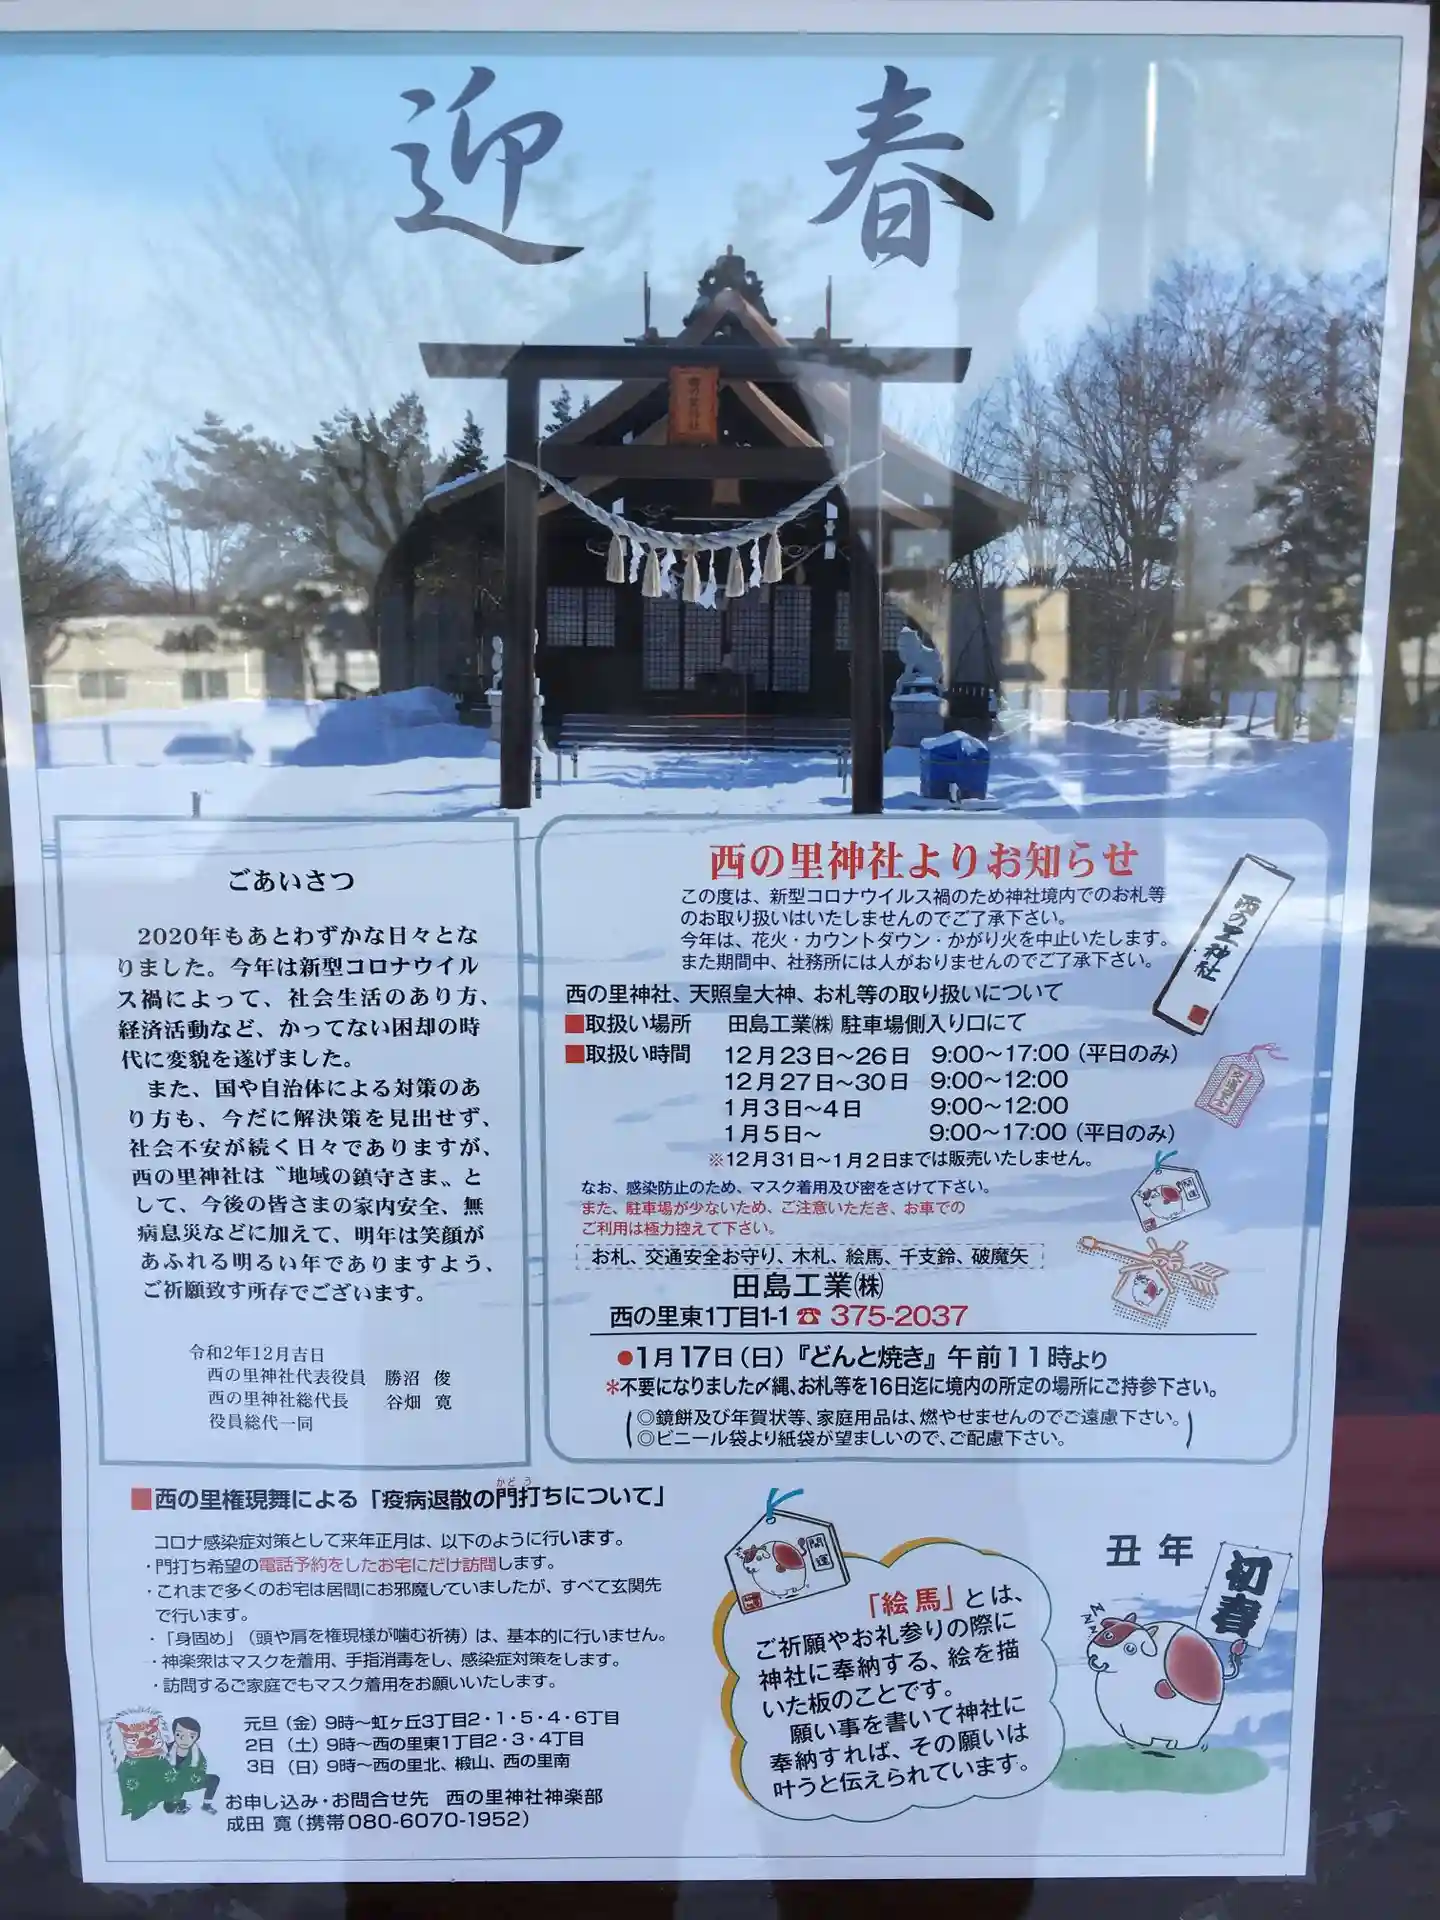 迎春
西の里神社
ごあいさつ
2020年もあとわずかな日々とな
りました。今年は新型コロナウイル
ス禍によって、社会生活のあり方、
経済活動など、かってない困却の時
代に変貌を遂げました。
また、国や自治体による対策のあ
り方も、今だに解決策を見出せず、
社会不安が続く日々でありますが、
西の里神社は〝地域の鎮守さま〟と
して、今後の皆さまの家内安全、無
病息災などに加えて、明年は笑顔が
あふれる明るい年でありますよう、
ご祈願致す所存でございます。
令和2年12月吉日
西の里神社代表役員 勝沼 俊
西の里神社総代長 谷畑 寛
役員総代一同
西の里神社よりお知らせ
この度は、新型コロナウイルス禍のため神社境内でのお札等
のお取り扱いはいたしませんのでご了承下さい。
今年は、花火・カウントダウン・かがり火を中止いたします。
また期間中、社務所には人がおりませんのでご了承下さい。
西の里神社
西の里神社、天照皇大神、お札等の取り扱いについて
■取扱い場所 田島工業㈱ 駐車場側入り口にて
■取扱い時間 12月23日〜26日 9:00〜17:00（平日のみ）
12月27日〜30日 9:00〜12:00
1月3日〜4日 9:00〜12:00
1月5日〜 9:00〜17:00（平日のみ）
※12月31日〜1月2日までは販売いたしません。
なお、感染防止のため、マスク着用及び密をさけて下さい。
また、駐車場が少ないため、ご注意いただき、お車での
ご利用は極力控えて下さい。
お札、交通安全お守り、木札、絵馬、干支鈴、破魔矢
田島工業㈱
西の里東1丁目1-1 ☎ 375-2037
●1月17日（日）『どんと焼き』午前11時より
＊不要になりました〆縄、お札等を16日迄に境内の所定の場所にご持参下さい。
◎鏡餅及び年賀状等、家庭用品は、燃やせませんのでご遠慮下さい。
◎ビニール袋より紙袋が望ましいので、ご配慮下さい。
■西の里権現舞による「疫病退散の門打ちについて」
かどう
コロナ感染症対策として来年正月は、以下のように行います。
・門打ち希望の電話予約をしたお宅にだけ訪問します。
・これまで多くのお宅は居間にお邪魔していましたが、すべて玄関先
で行います。
・「身固め」（頭や肩を権現様が噛む祈祷）は、基本的に行いません。
・神楽衆はマスクを着用、手指消毒をし、感染症対策をします。
・訪問するご家庭でもマスク着用をお願いいたします。
元旦（金）9時〜虹ヶ丘3丁目2・1・5・4・6丁目
2日（土）9時〜西の里東1丁目2・3・4丁目
3日（日）9時〜西の里北、椴山、西の里南
お申し込み・お問合せ先 西の里神社神楽部
成田 寛（携帯080-6070-1952）
開運
「絵馬」とは、
ご祈願やお礼参りの際に
神社に奉納する、絵を描
いた板のことです。
願い事を書いて神社に
奉納すれば、その願いは
叶うと伝えられています。
丑年
初春